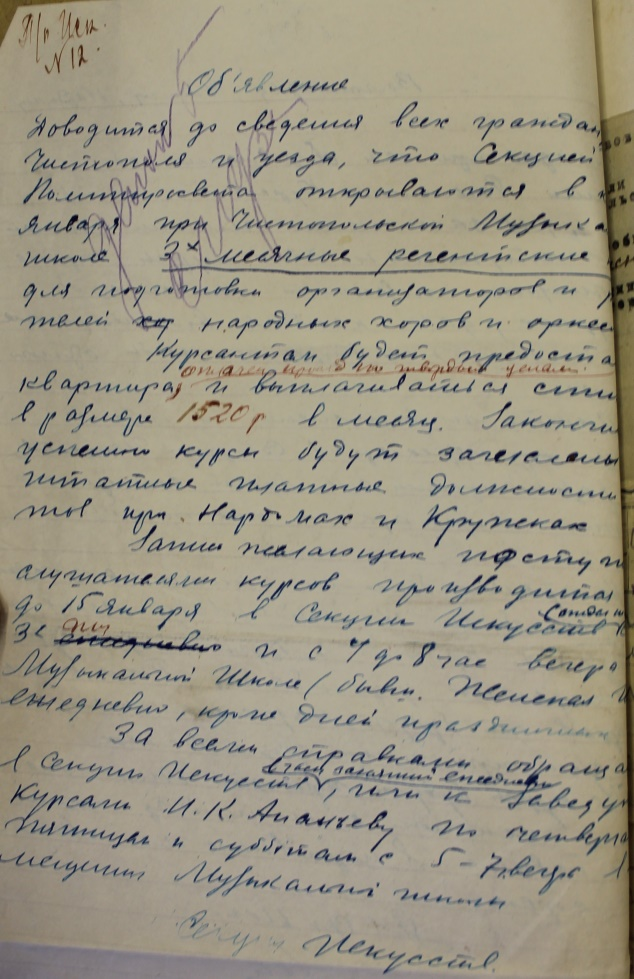 П/о Иск.
N 12.
Об'явление
Доводится до сведения всех граждан
Чистополя и уезда, что Секцией
Политпросвета открываются в
января при Чистопольской Музыка
школе 3х месячные регентские
для подготовки организаторов и
телей народных хоров и оркес
Курсантам будет предоста
квартира, и выплачиваться сти
в размере 1520 р в месяц. Закончи
успешно курсы будут зачислены
штатные платные должности
тов при Нардомах и Кружках
Запись желающих поступ
слушателями курсов производится
до 15 января в Секции Искусств
за дни ежедневно и с 7 до 8 час вечера
Музыкальной Школе (бывш. Женская
ежедневно, кроме дней праздничных
За всеми справками обраща
в часы занятий ежедневно
в Секцию Искусств, или к Заведую
курсами И. К. Ананьеву по четверга
пятницам и субботам с 5-7 вечера в
мещении Музыкальной школы
Секция Искусств.